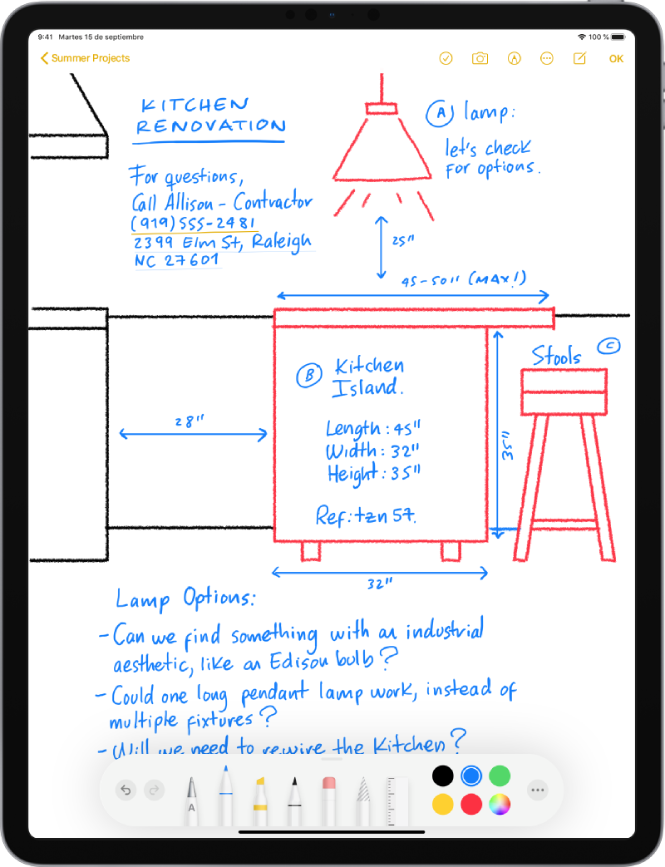 9:41 Martes 15 de septiembre
100 %
Summer Projects
OK
KITCHEN
RENOVATION
A lamp:
let's check
for options.
For questions,
Call Allison - Contractor
(919) 555-2481
2399 Elm St, Raleigh
NC 27601
25"
45-50" (MAX!)
Stools C
B Kitchen
Island.
28"
Length: 45"
Width: 32"
Height: 35"
35"
Ref: tzn 57.
32"
Lamp Options:
- Can we find something with an industrial
aesthetic, like an Edison bulb?
- Could one long pendant lamp work, instead of
multiple fixtures?
- Will we need to rewire the Kitchen?
A